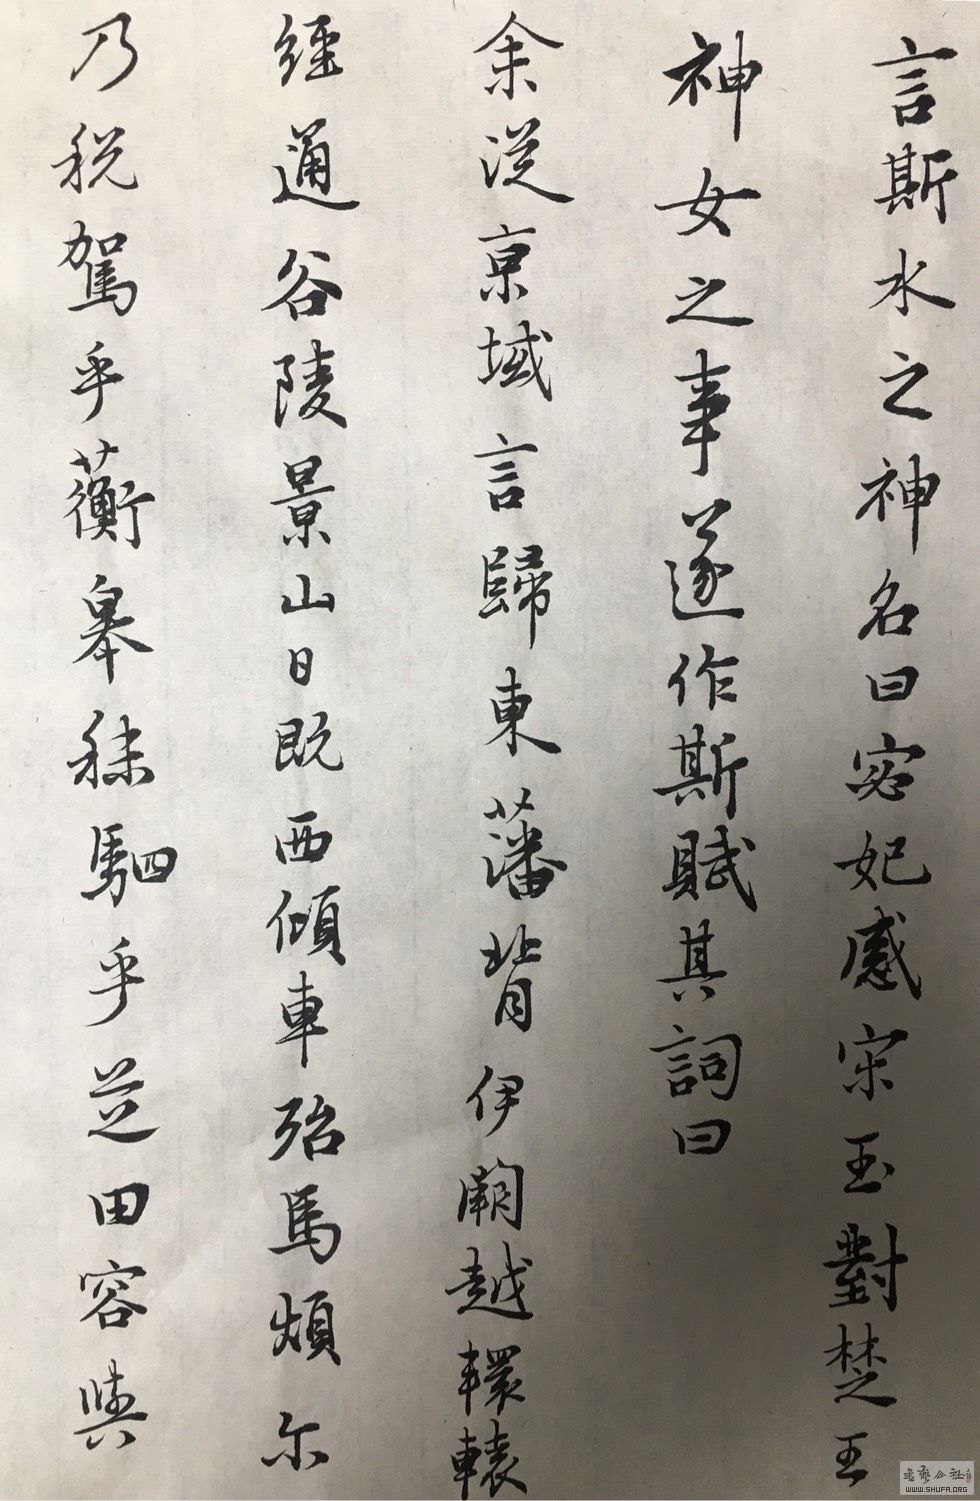 言斯水之神名曰宓妃感宋玉對楚王
神女之事遂作斯賦其詞曰
余從京域言歸東藩背伊闕越轘轅
經通谷陵景山日既西傾車殆馬煩尔
乃稅駕乎蘅皋秣駟乎芝田容與
WWW.SHUFA.ORG